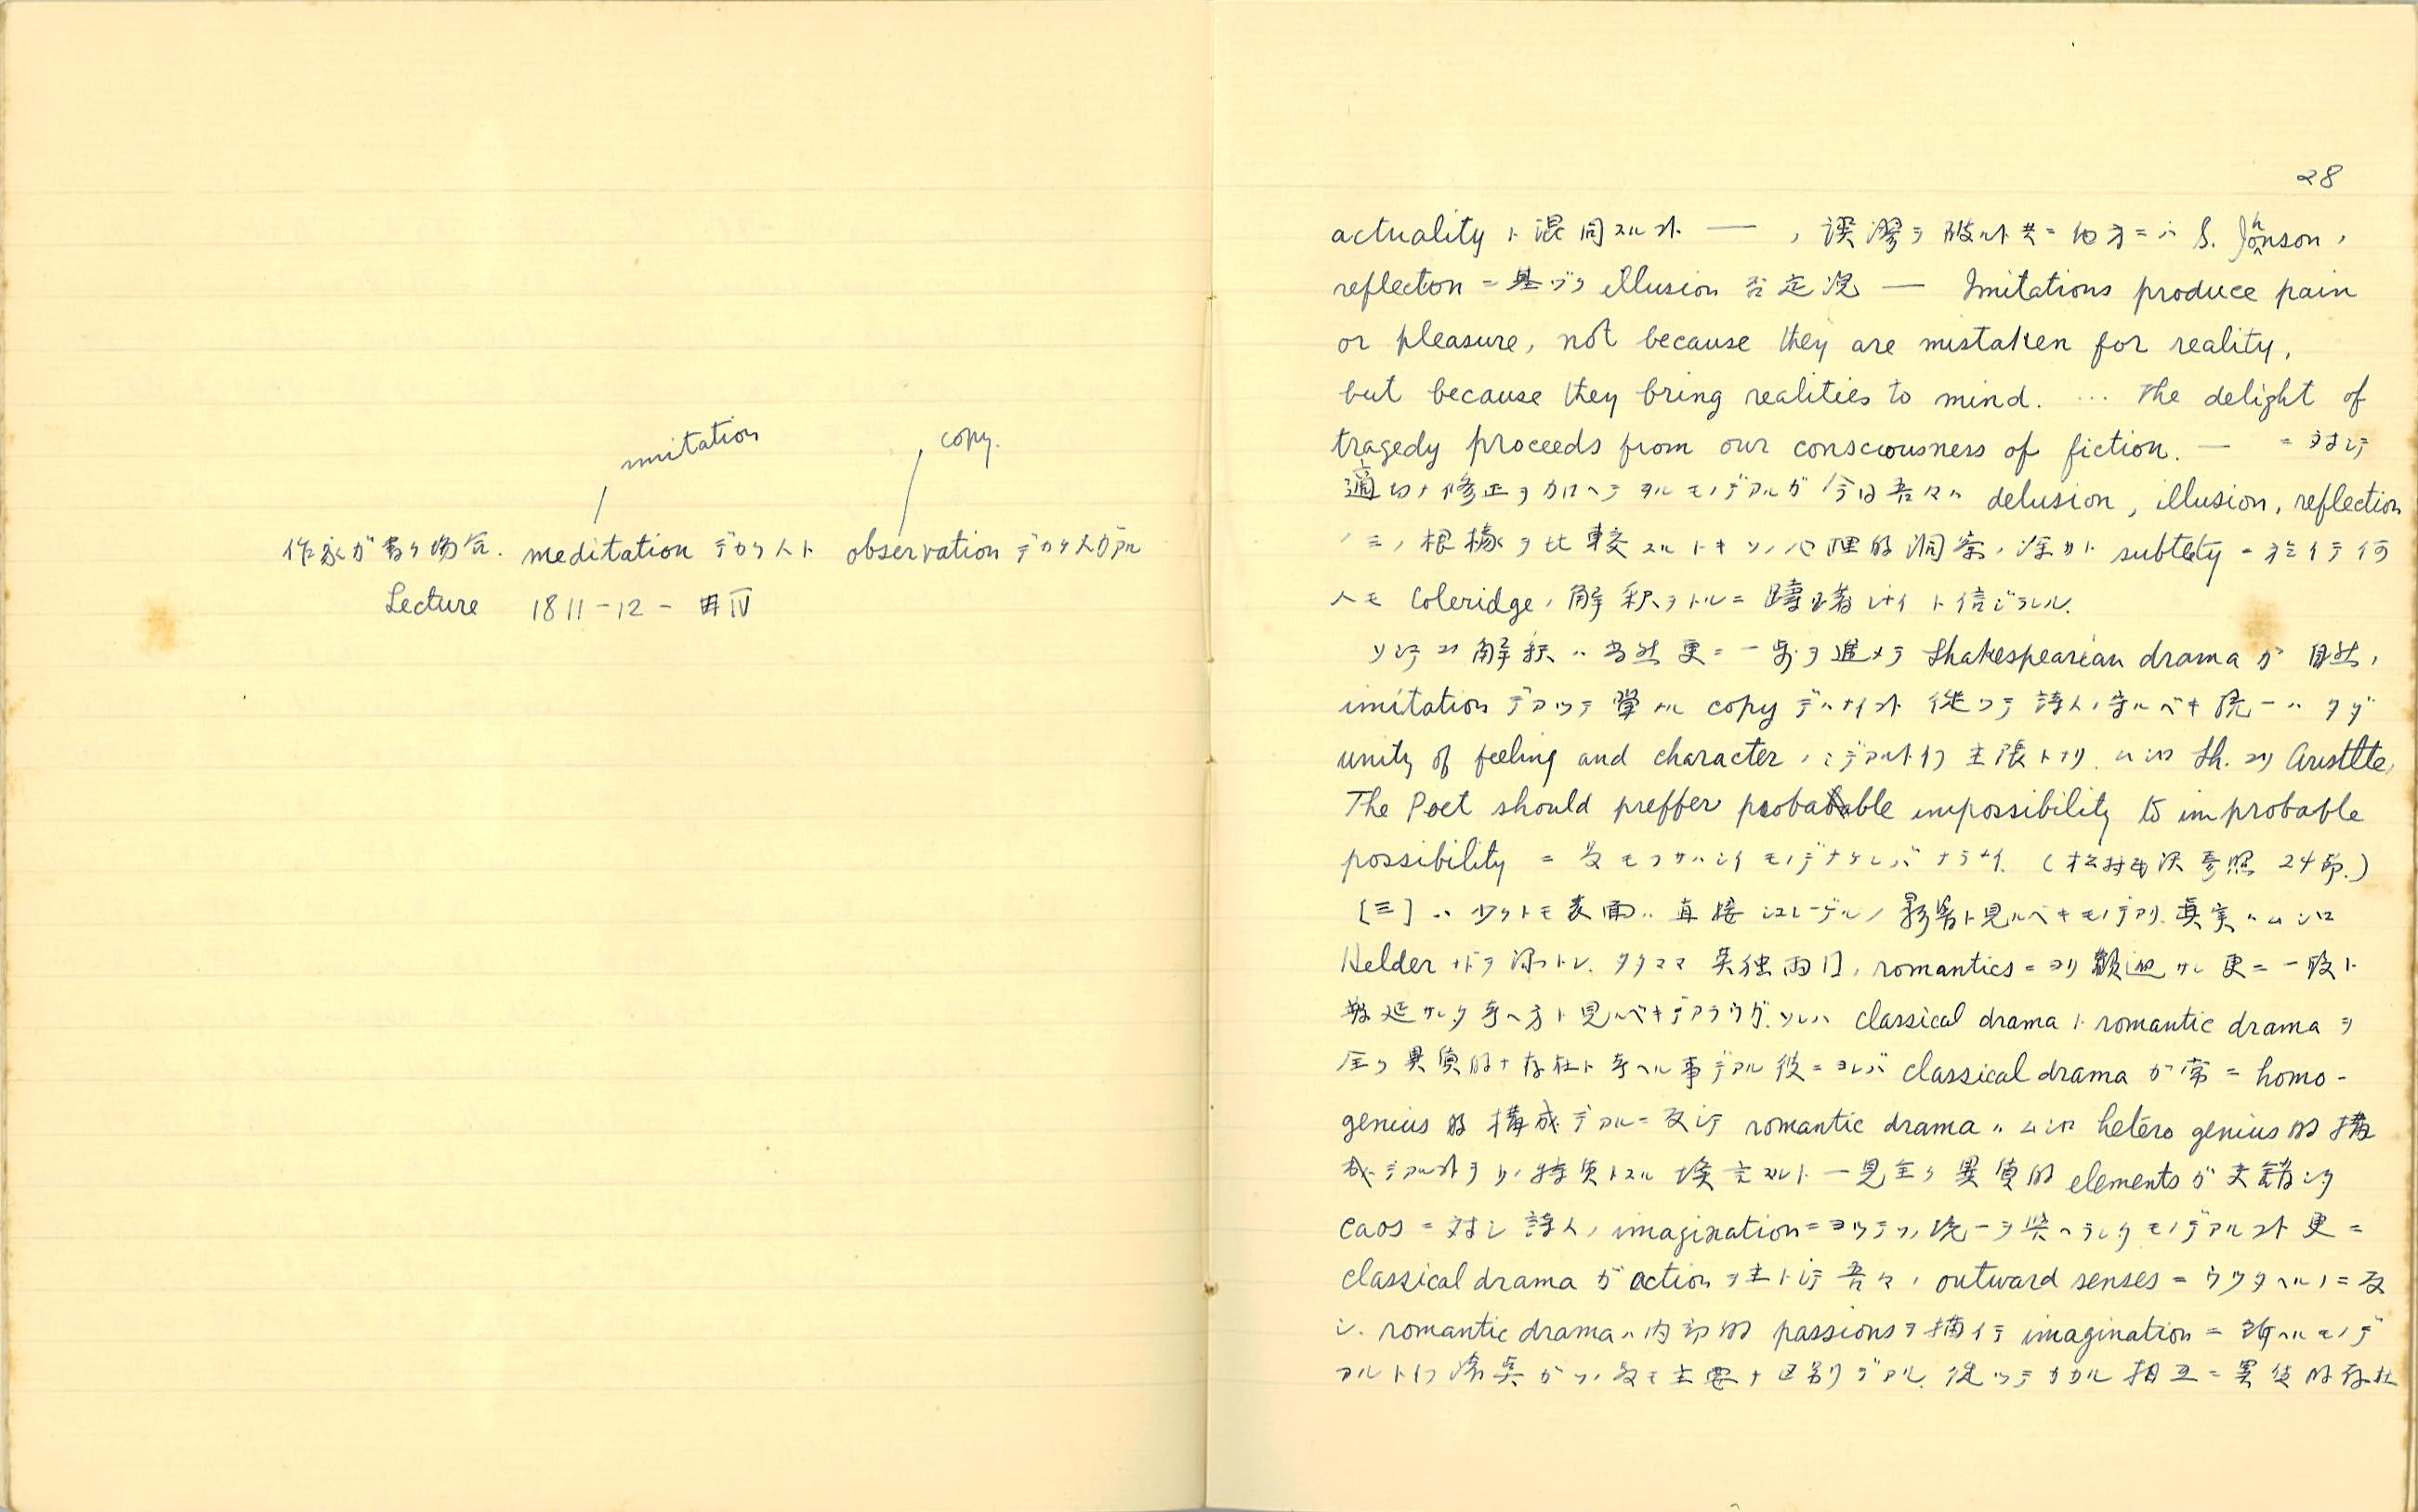 imitation copy.
作家が書ク場合. meditation デカク人ト observation デカク人ガアル
Lecture 1811-12- 㐧IV
28
actuality ト混同スルコト ── ノ誤謬ヲ破ルト共ニ他方ニハ S. Johnson ノ
reflecton ニ基ヅク illusion 否定説 ─ Imitations produce pain
or pleasure, not because they are mistaken for reality,
but because they bring realities to mind. ... The delight of
tragedy proceeds from our consciousness of fiction. ─ ニ対シテ
適切ナ修正ヲ加ヘテヰルモノデアルガ今日吾々ハ delusion, illusion, reflection
ノ三ノ根拠ヲ比較スルトキソノ心理的洞察ノ深サト subtlety ニ於イテ何
人モ Coleridge ノ解釈ヲトルニ躊躇シナイト信ジラレル.
ソシテコノ解釈ハ当然更ニ一歩ヲ進メテ Shakespearian drama ガ自然ノ
imitation デアッテ単ナル copy デハナイコト 従ツテ詩人ノ守ルベキ統一ハタダ
unity of feeling and character ノミデアルト イフ主張トナリ. ムシロ Sh. コソ Aristtle ノ
The Poet should preffer probable impossibility to improbable
possibility ニ最モフサハシイモノデナケレバナラナイ. (松村氏訳参照 24節.)
[三] ハ少クトモ表面ハ直接シュレーゲルノ影響ト見ルベキモノデアリ. 真実ハムシロ
Helder ナドヲ源トシ. タマタマ英独両国ノ romantics ニヨリ歓迎サレ更ニ一般ト
敷延サレタ考ヘ方ト見ルベキデアラウガ. ソレハ classical drama ト romantic drama ヲ
全ク異質的ナ存在ト考ヘル事デアル 彼ニヨレバ classical drama ガ常ニ homo-
genius 的構成デアルニ反シテ romantic drama ハムシロ hetero genius 的構
成デアルコトヲソノ特質トスル 換言スルト一見全ク異質的 elements ガ交錯シタ
caos ニ対シ詩人ノ imagination ニヨツテソノ統一ヲ与ヘラレタモノデアルコト 更ニ
classical drama ガ action ヲ主トシテ吾々ノ outward senses ニウッタヘルノニ反
シ. romantic drama ハ内部的 passions ヲ描イテ imagination ニ訴ヘルモノデ
アルトイフ 点ガソノ最モ主要ナ区別デアル. 従ツテカカル相互ニ異質的存在